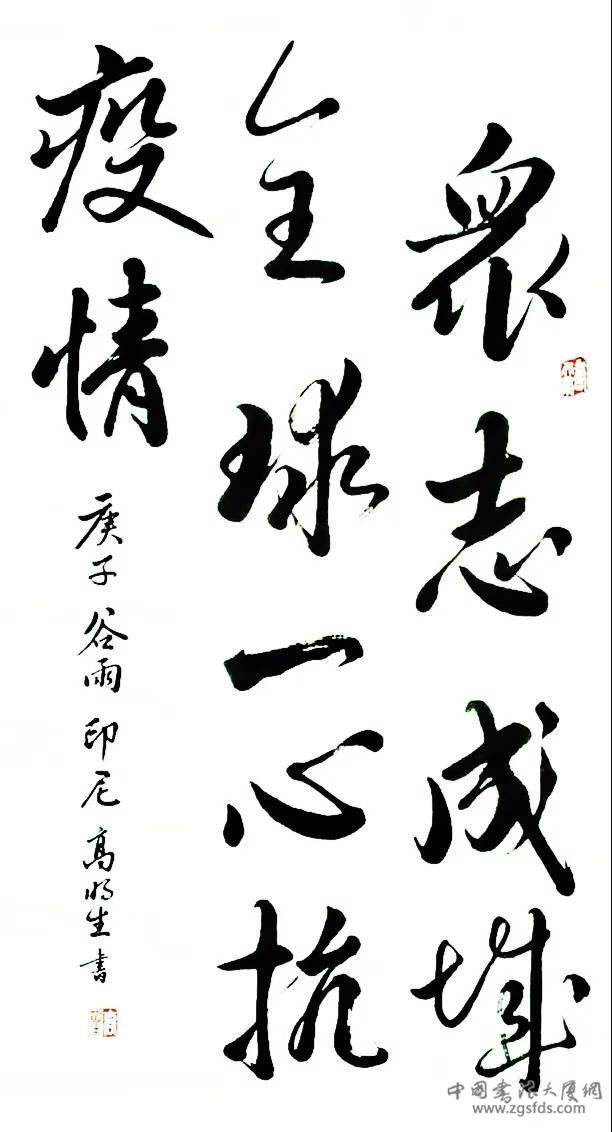 眾志成城
全球一心抗
疫情
庚子谷雨印尼高明生書
中國書法大厦網
www.zgsfds.com